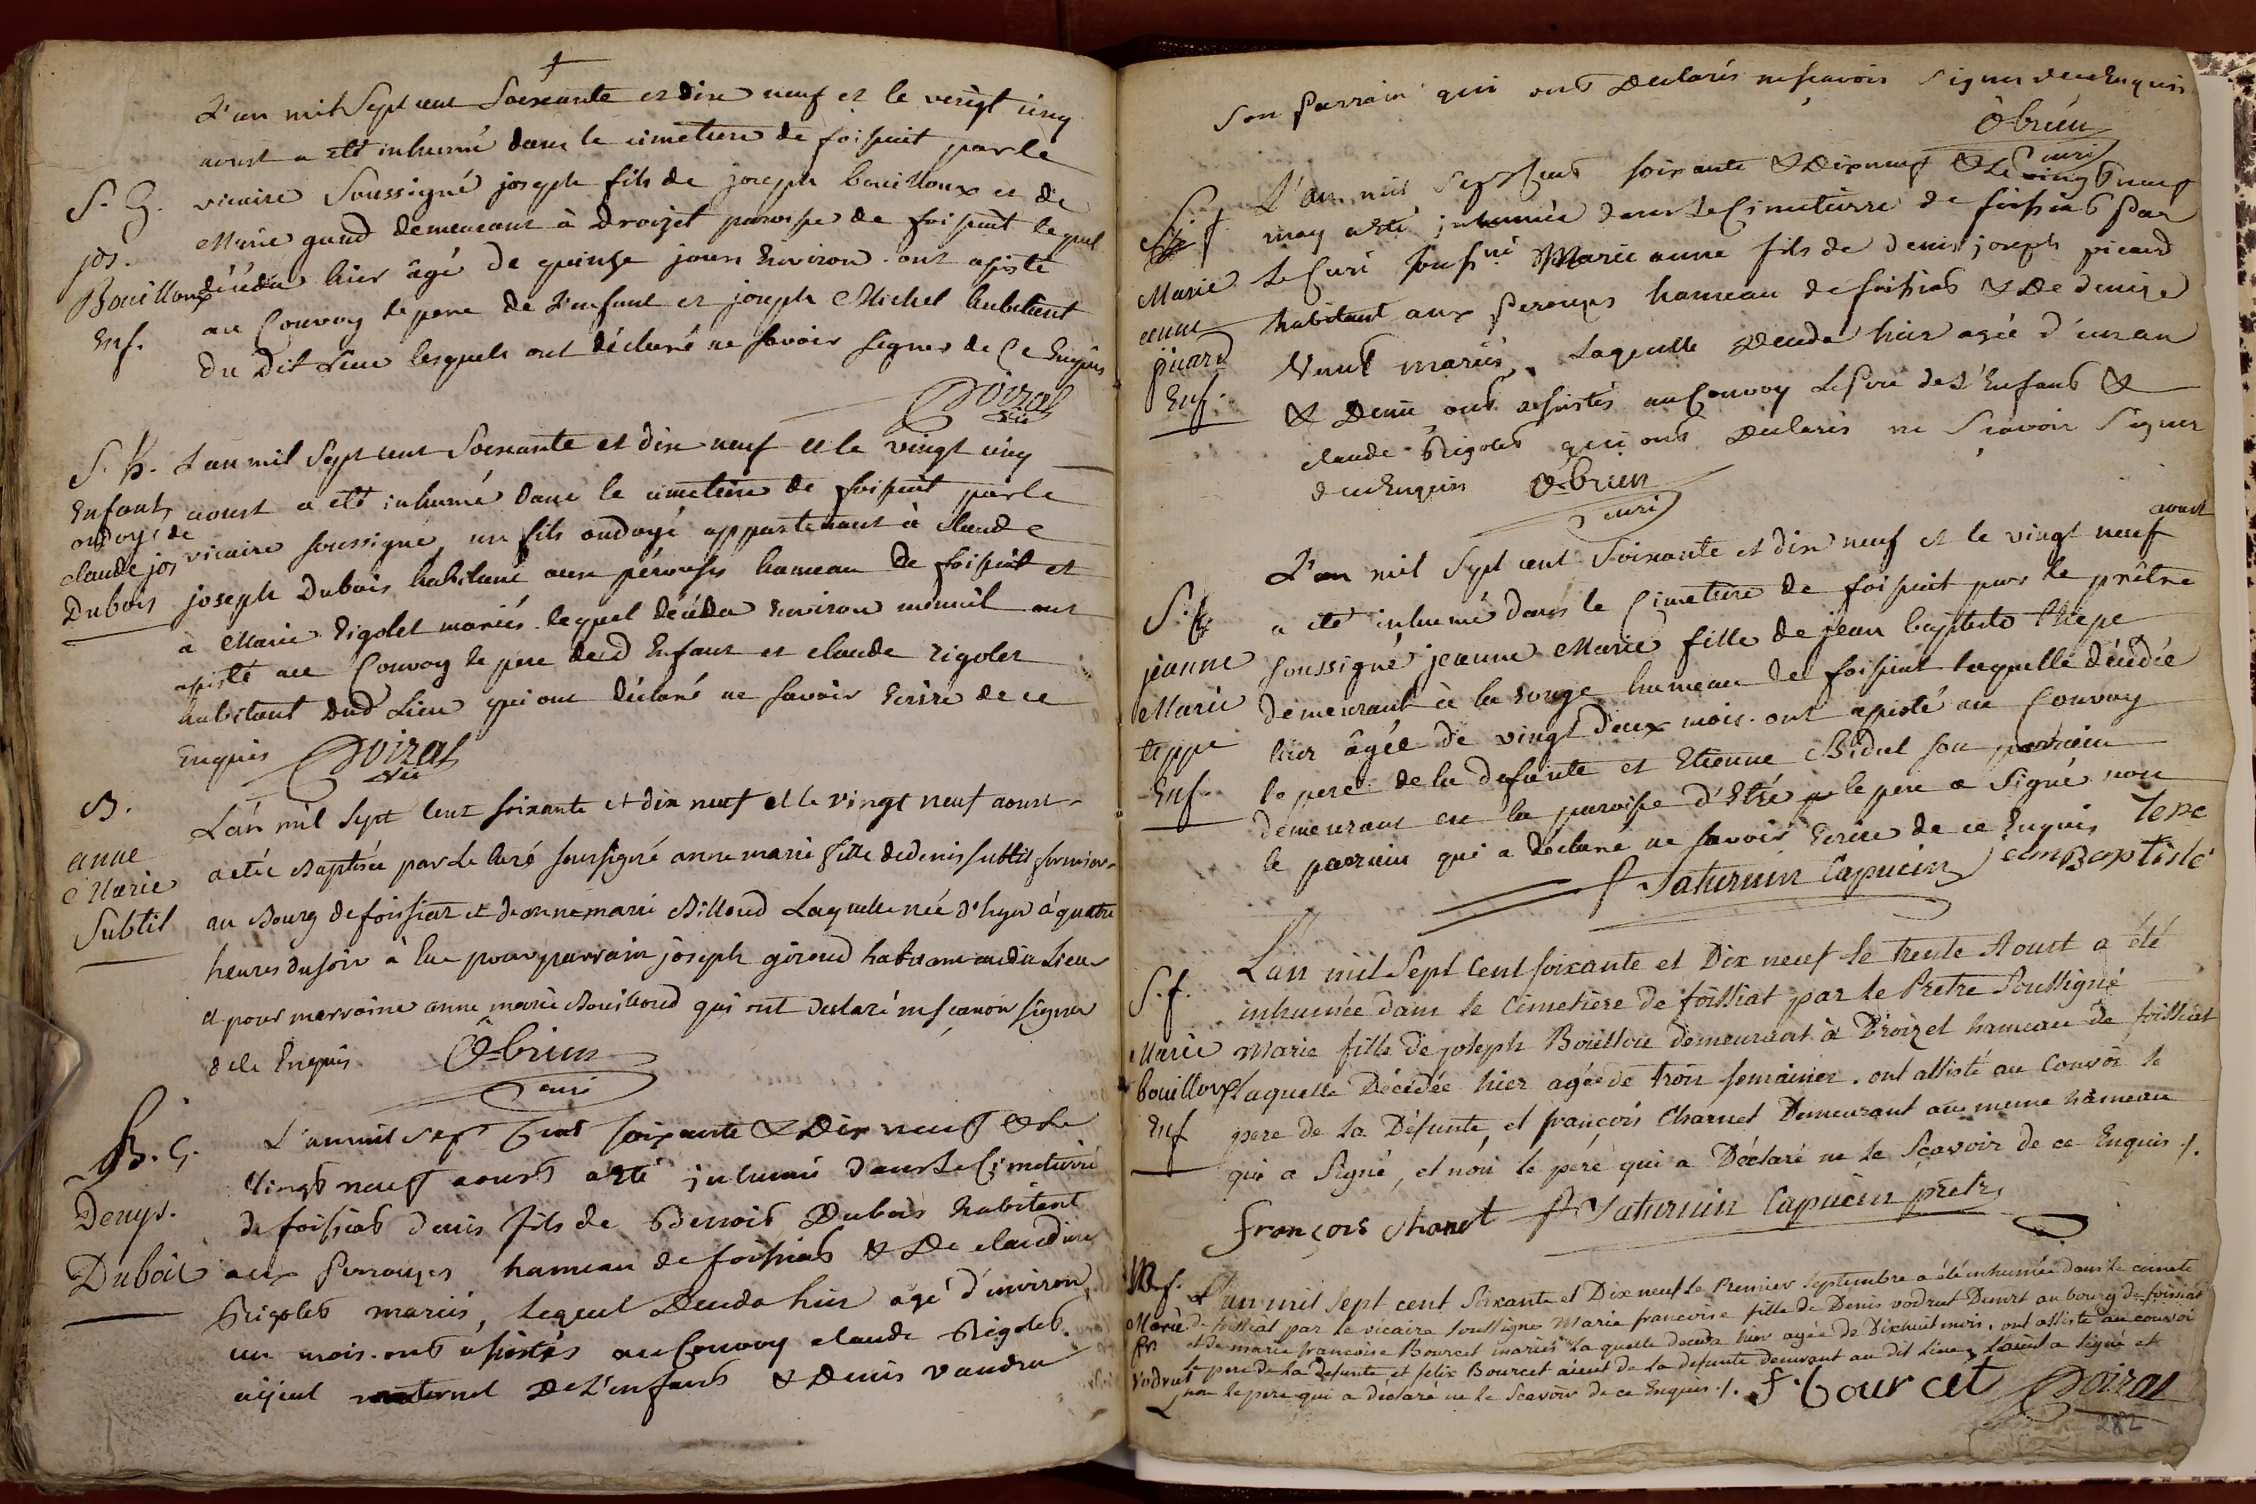 L'an mil sept cent soixante et dix neuf et le vingt cinq
aoust a été inhumé dans le cimetiere de foissiat par le
S. G. vicaire soussigné joseph fils de joseph bouilloux et de
jos. Marie gaud demeurant à Droizet paroisse de foissiat lequel
Bouilloux décéda hier âgé de quinze jours Environ. ont assisté
Enf. au Convoy le pere de l'enfant et joseph Michel habitant
du Dit Lieu lesquels ont déclaré ne savoir signer de Ce Enquis
Poizat
vic
S. G. L'an mil sept cent soixante et dix neuf et le vingt cinq
Enfant aoust a été inhumé dans le cimetiere de foissiat par le
ondoyé de
claude jos vicaire soussigné un fils ondoyé appartenant à claude
Dubois joseph Dubois habitant aux pérouses hameau de foissiat et
à Marie rigolet mariés lequel décéda Environ minuit ont
assisté au Convoy le pere dud Enfant et claude rigolet
habitant dud Lieu qui ont déclaré ne savoir Ecrire de ce
Enquis Poizat
vic
B. L'an mil sept cent soixante et dix neuf et le vingt neuf aoust
anne a été Baptisée par Le Curé soussigné anne marie fille de denis subtil fermier
Marie au Bourg de foissiat et de anne marie Billoud Laquelle née d'hyer à quatre
Subtil heures du soir à Eue pour parrain joseph giroud habitant audit Lieu
et pour marraine anne marie Bouilloud qui ont declaré ne sçavoir signer
de Ce Enquis Ô-brien
curé
S. G. L'an mil sept Cent soixante & Dix neuf & Le
Vingt neuf aoust a Eté inhumé dans Le Cimetierre
Denys. de foissiat denis fils de Benoit Dubois habitant
Dubois aux Perouzes hameau de foissiat & De claudine
Rigolet mariés, Lequel Deceda hier agé d'environ
un mois. ont assistés au Convoy claude Rigolet
aÿeul maternel De L'enfant & Denis vaudru
son Parrain qui ont Declarés ne scavoir signer de ce Enquis
Ô-brien
curé
S. f L'an mil sept Cent soixante & Dix neuf & Le vingt neuf
may a Eté inhumée dans Le Cimetierre de foissiat Par
Marie Le Curé soussné Marie anne fils de denis joseph picard
anne habitant aux Perouzes hameau de foissiat & De denise
picard Vernet mariés, Laquelle Deceda hier agée d'un an
Enf. & Demie ont assistés au Convoy Le Pere de L'Enfant &
claude Rigolet qui ont Declarés ne Scavoir Signer
de ce Enquis Ô-brien
curé
aoust
L'an mil Sept cent Soixante et dix neuf et le vingt neuf
S. f. a été inhumé dans le Cimetiere de foissiat par le prêtre
jeanne soussigné jeanne Marie fille de jean baptiste Thepe
Marie demeurant à la rouge hameau de foissiat laquelle décédée
teppe hier âgée de vingt deux mois. ont assisté au Convoy
Enf. le pere de la defunte et Etienne Bidul son parrain
demeurant en la paroisse d'Etré le pere a signé non
le parrain qui a declaré ne savoir Ecrire de ce Enquis Tepe
f Saturnin Capucin jean Baptiste
L'an mil Sept Cent soixante et Dix neuf le trente Aoust a été
S. f. inhumée dans le Cimetière de foissiat par le Pretre Soussigné
Marie Marie fille de joseph Bouillou demeurant à Droizet hameau de foissiat
bouilloux laquelle Décédée hier agée de trois semaines. ont assisté au Convoi le
Enf pere de la Défunte, et françois Charnet Demeurant au meme hameau
qui a Signé, et non le peré qui a Déclaré ne le Scavoir de ce Enquis ./.
françois Chanet f Saturnin Capucin pretre
M f. L'an mil sept cent Soixante et Dix neuf le Premier septembre a été inhumée dans le cimete
Marie de foissiat par le vicaire soussigné Marie francoise fille de Denis vodrut Demrt au bourg de foissiat
fr. et de marie francoise Bourcet mariés laquelle deceda hier agée de Dixhuit mois. ont assisté au convoi
vodrut le pere de la Defunte et felix Bourcet aïeul de la defunte demeurant au dit lieu, L'aïeul a signé et
non le pere qui a declaré ne le Scavoir de ce Enquis ./. f. bourcet Poizat
282